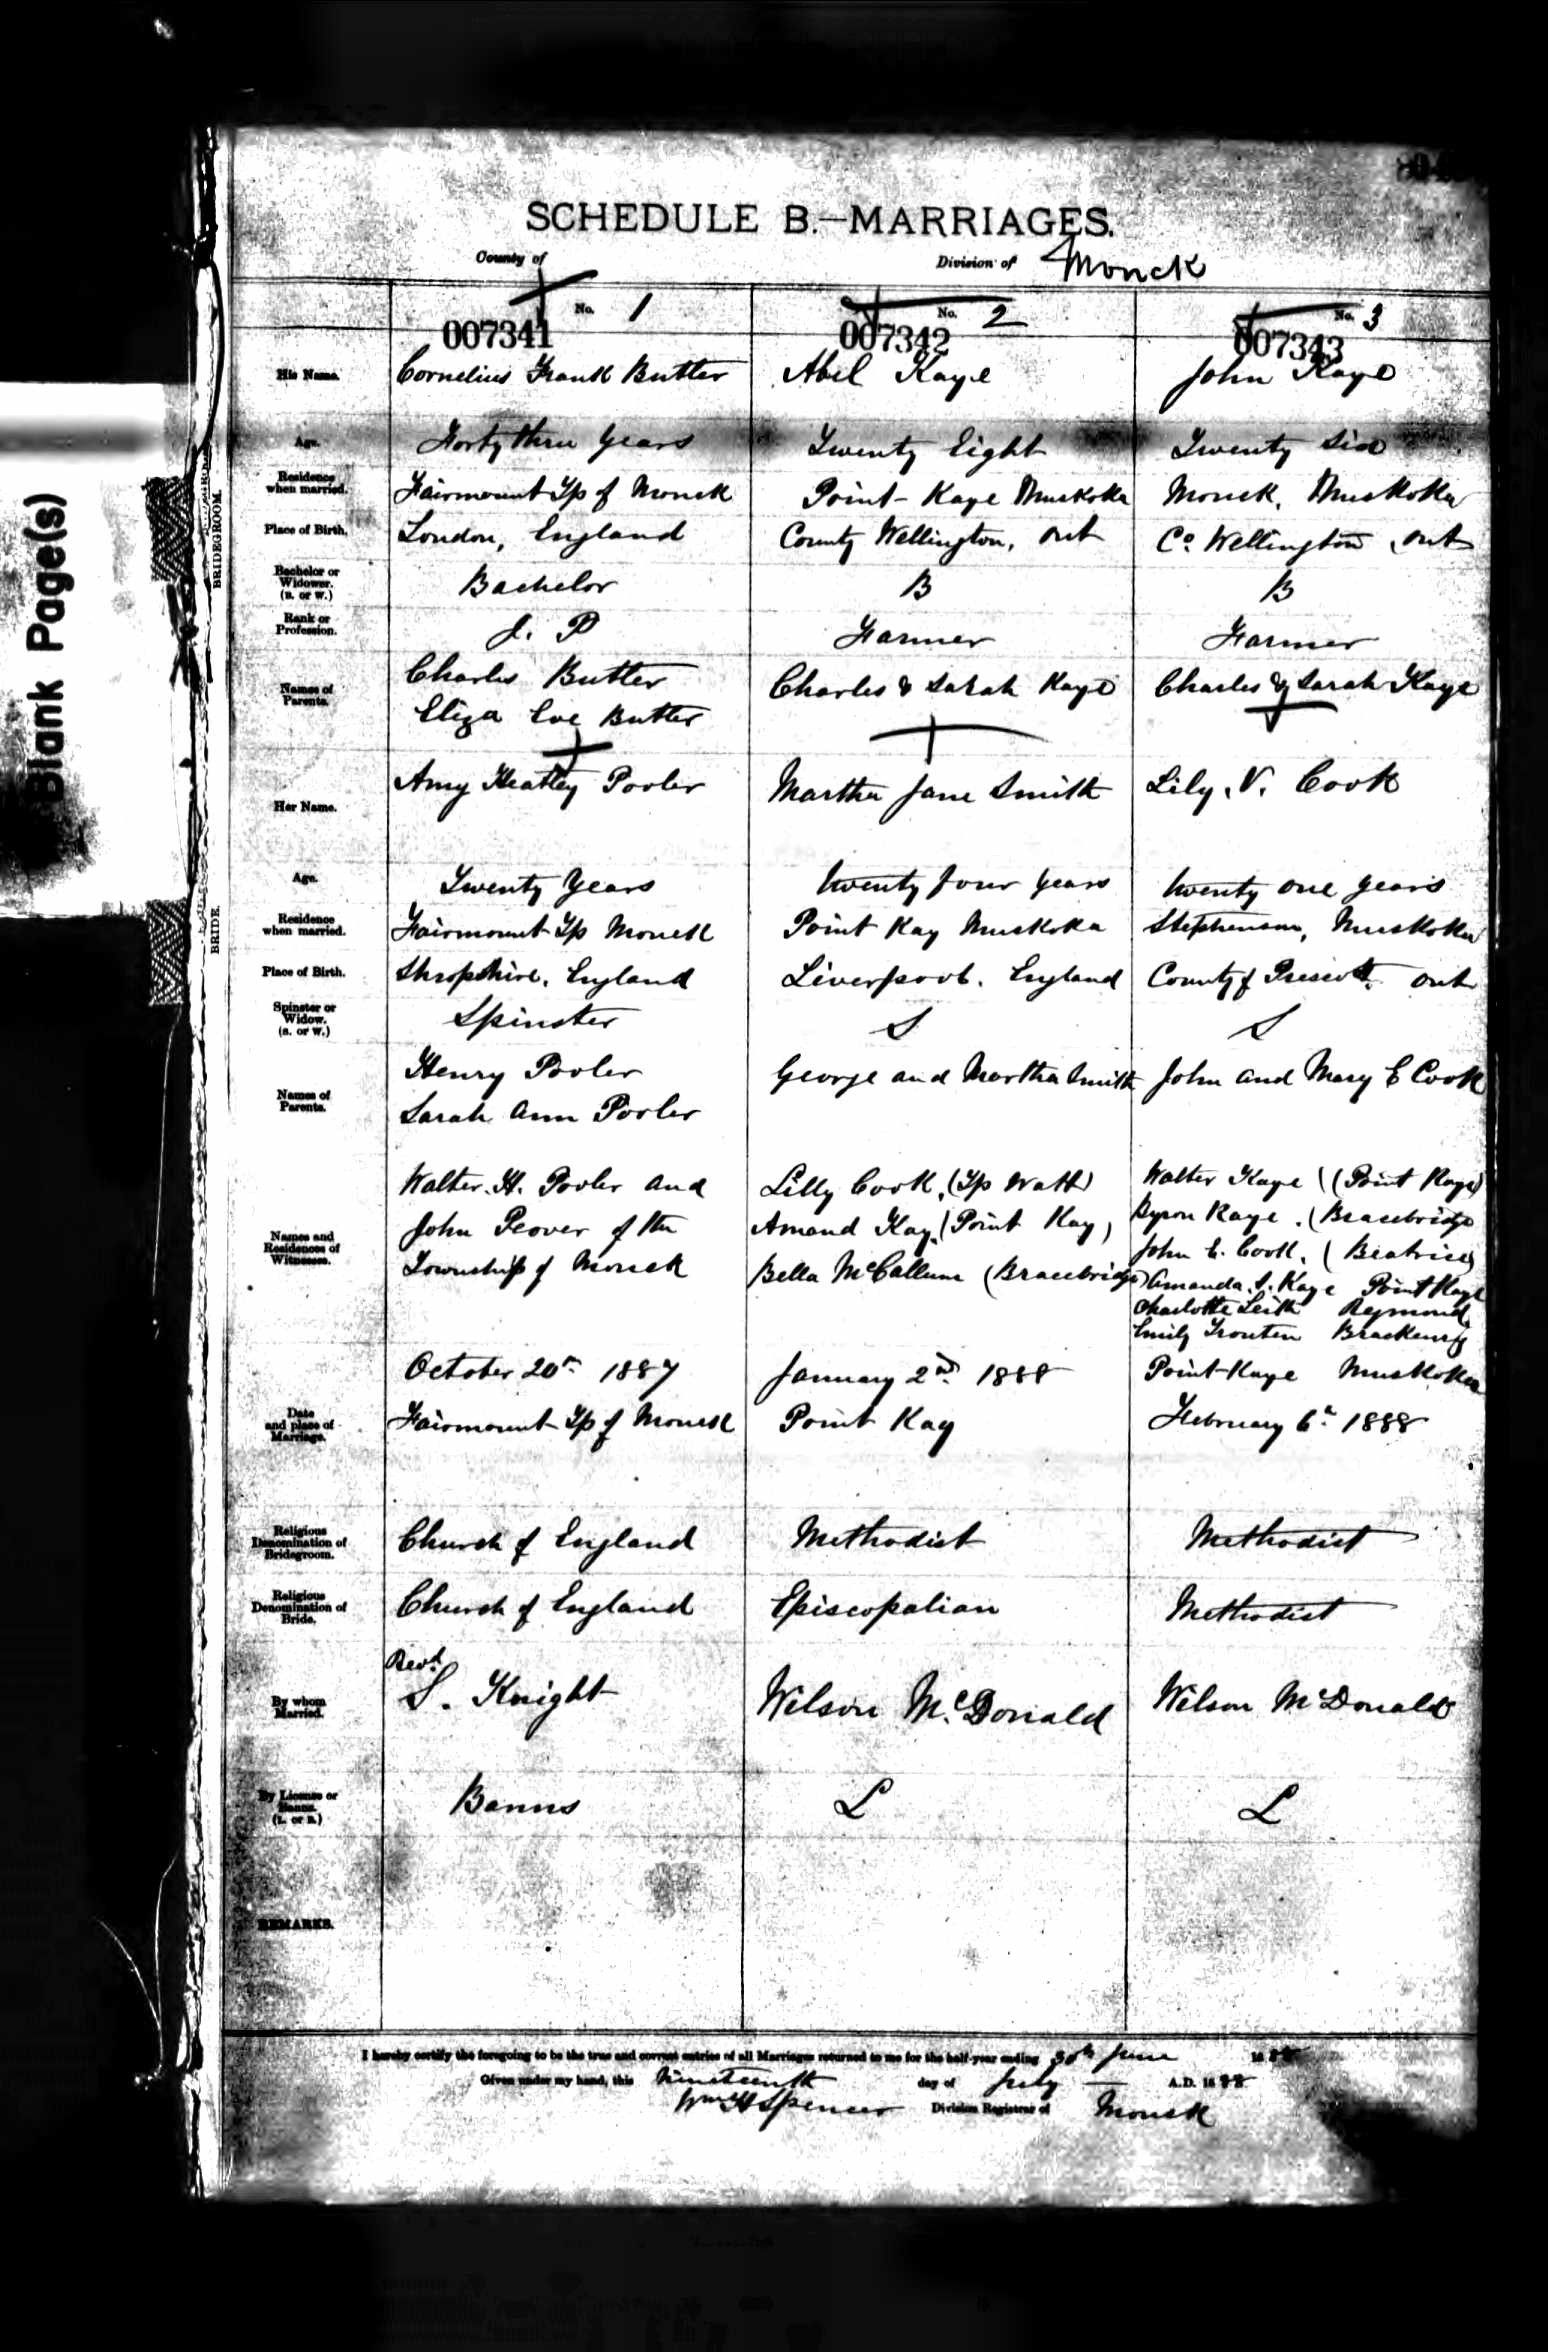 Blank Page(s)
SCHEDULE B.—MARRIAGES.
County of
Division of Monck
No. 1
No. 2
No. 3
007341
007342
007343
BRIDEGROOM.
His Name. Cornelius Frank Butler Abel Kaye John Kaye
Age. Forty three years Twenty Eight Twenty Six
Residence when married. Fairmount Tp of Monck Point-Kaye Muskoka Monck, Muskoka
Place of Birth. London, England County Wellington, Ont Co. Wellington, Ont
Bachelor or Widower. (B. or W.) Bachelor B B
Rank or Profession. J. P Farmer Farmer
Names of Parents. Charles Butler Charles & Sarah Kaye Charles & Sarah Kaye
Eliza Eve Butler
BRIDE.
Her Name. Amy Heatley Pooler Martha Jane Smith Lily. V. Cook
Age. Twenty Years twenty four years twenty one years
Residence when married. Fairmount Tp Monck Point Kay Muskoka Stephenson, Muskoka
Place of Birth. Shropshire, England Liverpool. England County of Prescott. Ont
Spinster or Widow. (S. or W.) Spinster S S
Names of Parents. Henry Pooler George and Martha Smith John and Mary E Cook
Sarah Ann Pooler
Names and Residences of Witnesses.
Walter. H. Pooler and
John Peover of the
Township of Monck
Lilly Cook, (Tp Watt)
Amand Kay, (Point Kay)
Bella McCallum (Bracebridge)
Walter Kaye (Point Kaye)
Byron Kaye. (Bracebridge
John E. Cook. (Beatrice)
Amanda. S. Kaye Point Kaye
Charlotte Leith Raymond
Emily Trouten
Date and place of Marriage.
October 20th 1887 January 2nd 1888 Point-Kaye Muskoka
Fairmount Tp of Monck Point Kay February 6th 1888
Religious Denomination of Bridegroom. Church of England Methodist Methodist
Religious Denomination of Bride. Church of England Episcopalian Methodist
By whom Married. Revd. S. Knight Wilson McDonald Wilson McDonald
By License or Banns. (L. or B.) Banns L L
REMARKS.
I hereby certify the foregoing to be the true and correct entries of all Marriages returned to me for the half-year ending 30th June 1888
Given under my hand, this Nineteenth day of July A.D. 1888
Wm H Spencer Division Registrar of Monck